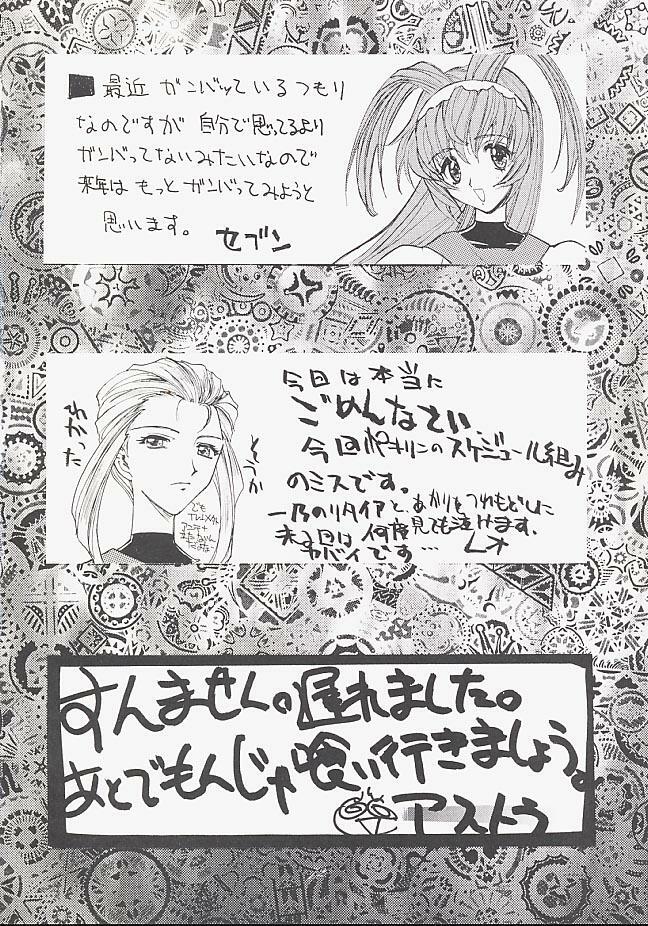 最近 ガンバッているつもり
なのですが 自分で思ってるより
ガンバってないみたいなので
来年は もっと ガンバってみようと
思います。 セブン
今回は本当に
ごめんなさい
今回
のスケジュール組み
のミスです。
一乃のリタイアと、あかりをつれもどしに
来る回は 何度見ても泣けます。
ヤバイです…
でも
すんません。遅れました。
あとでもんじゃ喰い行きましょう。
アストラ